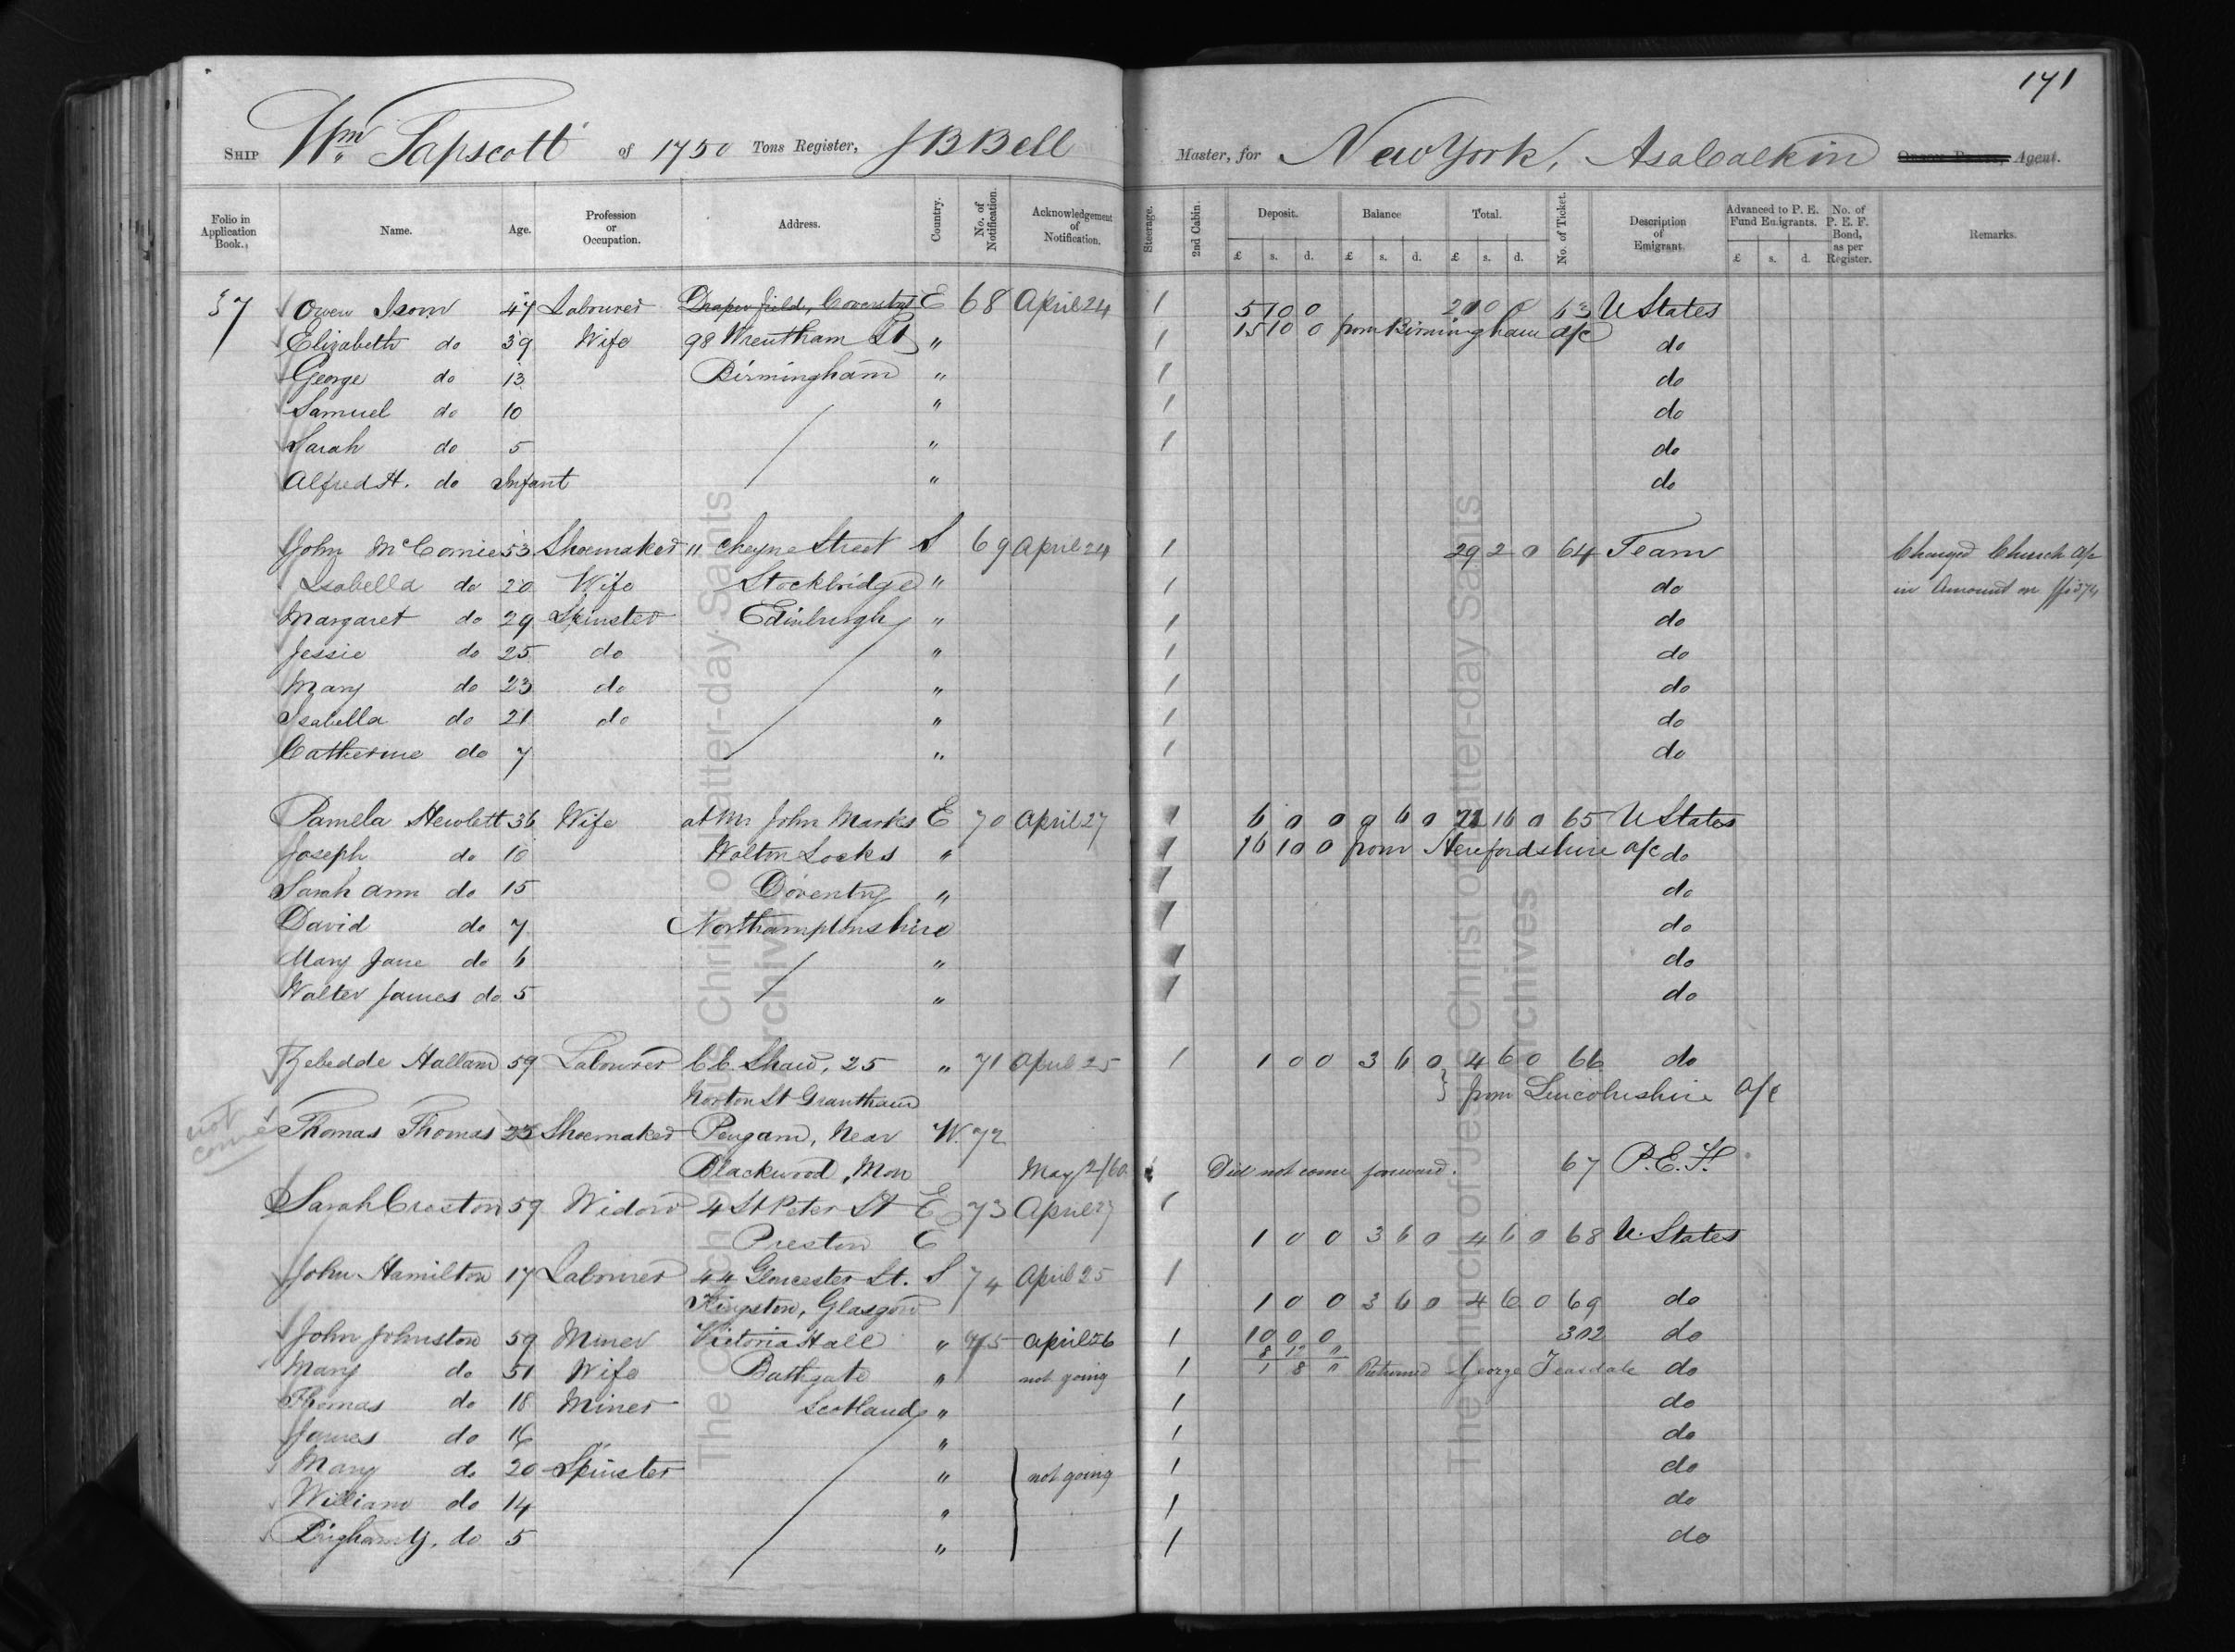 171
SHIP Wm. Tapscott of 1750 Tons Register, J B Bell Master, for New York, Asa Calkin Agent.
Folio in Application Book. Name. Age. Profession or Occupation. Address. Country. No. of Notification. Acknowledgement of Notification. Steerage. 2nd Cabin. Deposit. Balance Total. No. of Ticket. Description of Emigrant. Advanced to P. E. Fund Emigrants. No. of P. E. F. Bond, as per Register. Remarks.
£ s. d. £ s. d. £ s. d. £ s. d.
57 Owen Isom 47 Labourer Draper field, Coventry E 68 April 24 1 5 10 0 21 0 0 63 U States
Elizabeth do 39 Wife 98 Wrentham St " 1 15 10 0 from Birmingham a/c do
George do 13 Birmingham " 1 do
Samuel do 10 " 1 do
Sarah do 5 " 1 do
Alfred H. do Infant " do
John McComie 53 Shoemaker 11 Cheyne Street S 69 April 24 1 29 2 0 64 Team Charged Church a/c
Isabella do 20 Wife Stockbridge " 1 do in Amount on
Margaret do 29 Spinster Edinburgh " 1 do
Jessie do 25 do " 1 do
Mary do 23 do " 1 do
Isabella do 21 do " 1 do
Catherine do 7 " 1 do
Pamela Hewlett 36 Wife at Mr John Marks E 70 April 27 1 6 0 0 0 6 0 22 16 0 65 U States
Joseph do 10 Walton Locks " 1 16 10 0 from Herefordshire a/c do
Sarah Ann do 15 Doventry " 1 do
David do 7 Northamptonshire 1 do
Mary Jane do 6 " 1 do
Walter James do 5 " 1 do
Zebedde Hallam 59 Labourer C C Shaw, 25 " 71 April 25 1 1 0 0 3 6 0 4 6 0 66 do
Norton St Grantham } from Lincolnshire a/c
not come
Thomas Thomas 23 Shoemaker Pengam, Near W. 72
Blackwood, Mon May 2/60 Did not come forward. 67 P.E.F.
Sarah Creston 59 Widow 4 St Peter St E 73 April 27 1
Preston E 1 0 0 3 6 0 4 6 0 68 U. States
John Hamilton 17 Labourer 44 Gloucester St. S 74 April 25 1
Kingston, Glasgow 1 0 0 3 6 0 4 6 0 69 do
John Johnston 59 Miner Victoria Hall " 75 April 26 1 10 0 0 302 do
8 12 0
Mary do 51 Wife Bathgate " not going 1 1 8 0 Returned George Teasdale do
Thomas do 18 Miner Scotland " 1 do
James do 16 " 1 do
Mary do 20 Spinster " not going 1 do
William do 14 " 1 do
Brigham Y. do 5 " 1 do
The Church of Jesus Christ of Latter-day Saints
Archives
The Church of Jesus Christ of Latter-day Saints
Archives